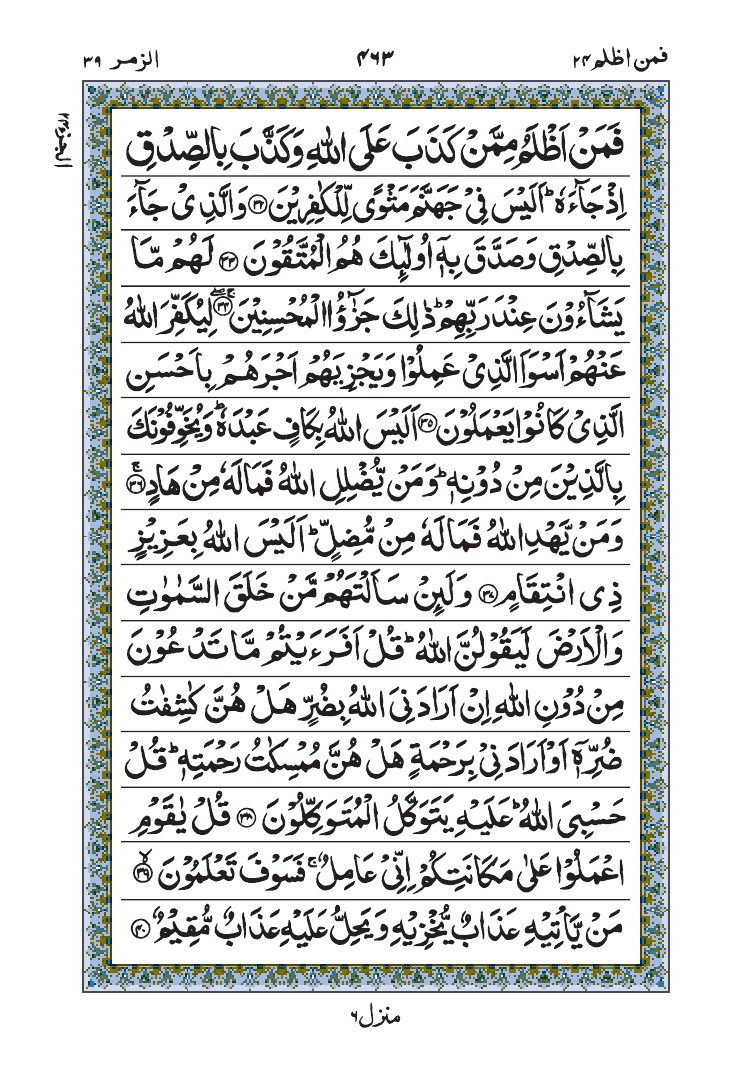 فمن اظلم ٢٤
٤٦٣
الزمر ٣٩
الجزء ٢٤
فَمَنْ اَظْلَمُ مِمَّنْ كَذَبَ عَلَى اللّٰهِ وَكَذَّبَ بِالصِّدْقِ
اِذْ جَآءَهٗ ؕ اَلَيْسَ فِيْ جَهَنَّمَ مَثْوًى لِّلْكٰفِرِيْنَ ﴿۳۲﴾ وَالَّذِيْ جَآءَ
بِالصِّدْقِ وَصَدَّقَ بِهٖۤ اُولٰٓئِكَ هُمُ الْمُتَّقُوْنَ ﴿۳۳﴾ لَهُمْ مَّا
يَشَآءُوْنَ عِنْدَ رَبِّهِمْ ؕ ذٰلِكَ جَزٰٓؤُا الْمُحْسِنِيْنَ ﴿۳۴﴾ۚۖ لِيُكَفِّرَ اللّٰهُ
عَنْهُمْ اَسْوَاَ الَّذِيْ عَمِلُوْا وَيَجْزِيَهُمْ اَجْرَهُمْ بِاَحْسَنِ
الَّذِيْ كَانُوْا يَعْمَلُوْنَ ﴿۳۵﴾ اَلَيْسَ اللّٰهُ بِكَافٍ عَبْدَهٗ ؕ وَيُخَوِّفُوْنَكَ
بِالَّذِيْنَ مِنْ دُوْنِهٖ ؕ وَمَنْ يُّضْلِلِ اللّٰهُ فَمَا لَهٗ مِنْ هَادٍ ﴿۳۶﴾ۚ
وَمَنْ يَّهْدِ اللّٰهُ فَمَا لَهٗ مِنْ مُّضِلٍّ ؕ اَلَيْسَ اللّٰهُ بِعَزِيْزٍ
ذِي انْتِقَامٍ ﴿۳۷﴾ وَلَئِنْ سَاَلْتَهُمْ مَّنْ خَلَقَ السَّمٰوٰتِ
وَالْاَرْضَ لَيَقُوْلُنَّ اللّٰهُ ؕ قُلْ اَفَرَءَيْتُمْ مَّا تَدْعُوْنَ
مِنْ دُوْنِ اللّٰهِ اِنْ اَرَادَنِيَ اللّٰهُ بِضُرٍّ هَلْ هُنَّ كٰشِفٰتُ
ضُرِّهٖۤ اَوْ اَرَادَنِيْ بِرَحْمَةٍ هَلْ هُنَّ مُمْسِكٰتُ رَحْمَتِهٖ ؕ قُلْ
حَسْبِيَ اللّٰهُ ؕ عَلَيْهِ يَتَوَكَّلُ الْمُتَوَكِّلُوْنَ ﴿۳۸﴾ قُلْ يٰقَوْمِ
اعْمَلُوْا عَلٰى مَكَانَتِكُمْ اِنِّيْ عَامِلٌ ۚ فَسَوْفَ تَعْلَمُوْنَ ﴿۳۹﴾ۙ
مَنْ يَّاْتِيْهِ عَذَابٌ يُّخْزِيْهِ وَيَحِلُّ عَلَيْهِ عَذَابٌ مُّقِيْمٌ ﴿۴۰﴾
منزل ٦